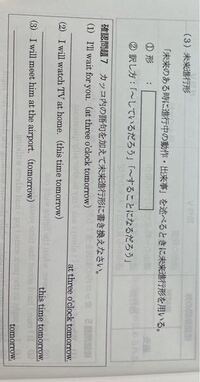 (3) 未来進行形
「未来のある時に進行中の動作・出来事」を述べるときに未来進行形を用いる。
① 形 :
② 訳し方 : 「～しているだろう」「～することになるだろう」
確認問題7 カッコ内の語句を加えて未来進行形に書き換えなさい。
(1) I'll wait for you. (at three o'clock tomorrow)
at three o'clock tomorrow.
(2) I will watch TV at home. (this time tomorrow)
this time tomorrow.
(3) I will meet him at the airport. (tomorrow)
tomorrow.